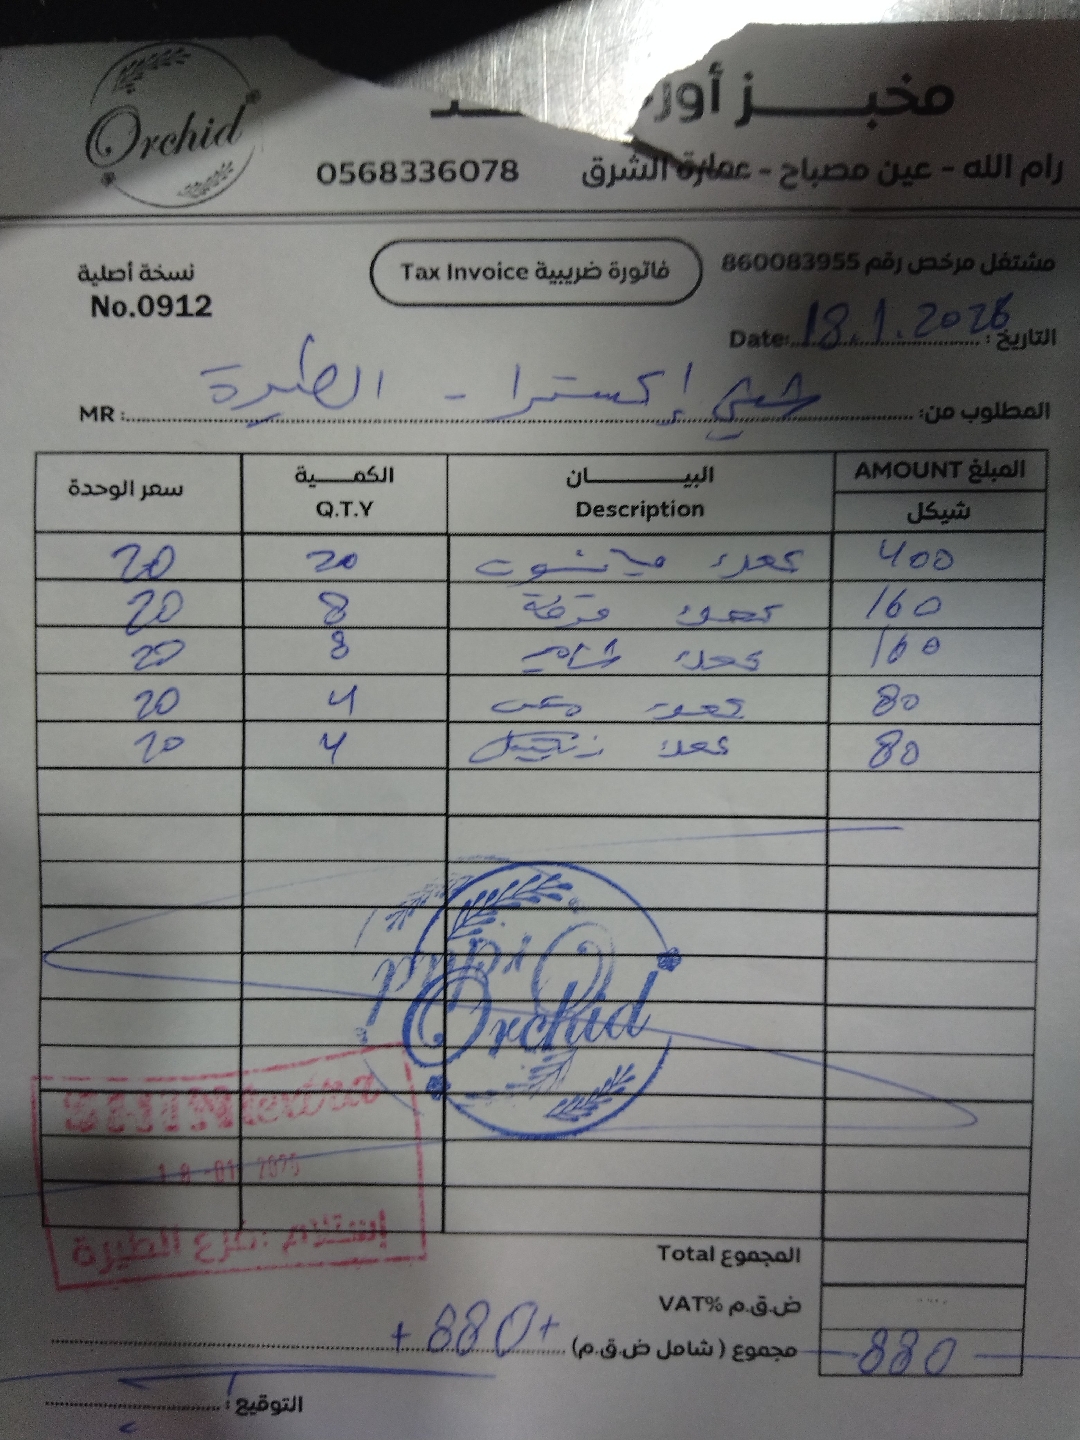 Orchid
مخبـــــز أور
رام الله - عين مصباح - عمارة الشرق 0568336078
مشتغل مرخص رقم 860083955
فاتورة ضريبية Tax Invoice
نسخة أصلية
No.0912
التاريخ : 18.1.2026 Date:
المطلوب من: إكسترا - الطيرة MR :
المبلغ AMOUNT البيـــــان الكمـــية سعر الوحدة
شيكل Description Q.T.Y
400 كعك 20 20
160 كعك قزحة 8 20
160 كعك 8 20
80 كعك 4 20
80 كعك زنجبيل 4 20
Orchid
Orchid
استلام : فرع الطيرة
المجموع Total
ض.ق.م VAT%
مجموع ( شامل ض.ق.م) +880+ 880
التوقيع :